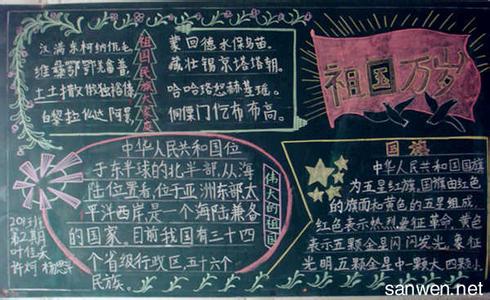 汉满东柯纳仡毛
维彝鄂鄂普
土土撒独裕傣
白黎拉仫达阿
祖国民族大家庭
蒙回德水保乌苗。
藏壮锡京塔塔朝。
哈哈塔怒赫基瑶。
侗傈门仡布布高。
祖国万岁
中华人民共和国位
于东半球的北半部,从海
陆位置看,位于亚洲东部太
平洋西岸,是一个海陆兼备
的国家。目前我国有三十四
个省级行政区,五十六个
民族。
伟大的祖国
国旗
中华人民共和国国旗
为五星红旗,国旗由红色
的旗面和黄色的五星组成。
红色表示热烈象征革命,黄色
表示五颗金星闪闪发光,象征
光明,五颗金星中一颗大四颗小
班
第2期
叶佳
许珂 杨
sanwen.net